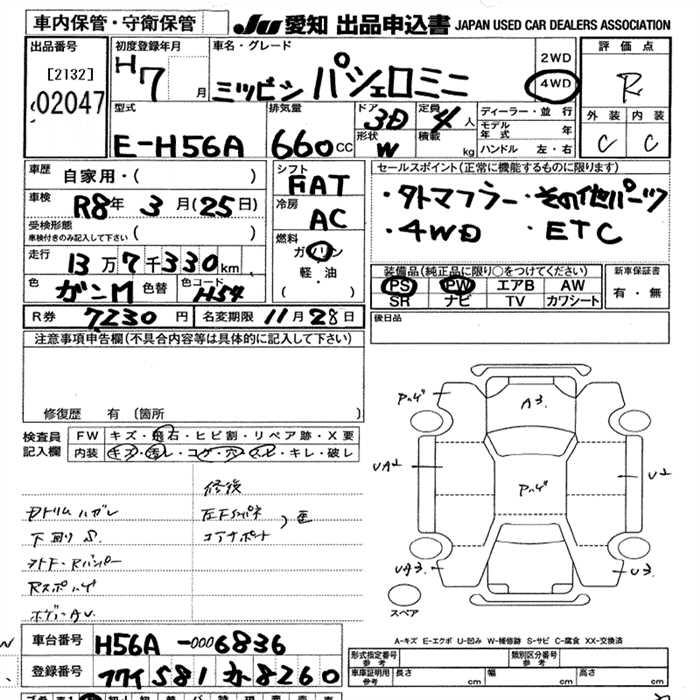 車内保管・守衛保管 JU 愛知 出品申込書 JAPAN USED CAR DEALERS ASSOCIATION
出品番号 [2132] 02047
初度登録年月 H7月
車名・グレード ミツビシ パジェロミニ 2WD 4WD
評価点 R
外装 C 内装 C
型式 E-H56A
排気量 660cc
ドア形状 3D W
定員 4人
積載 kg
ディーラー・並行
モデル年式 年
ハンドル 左・右
車歴 自家用・( )
車検 R8年 3月(25日)
受検形態 車検付きのみ記入して下さい ( )
走行 13万7千330km
色 ガンM 色替 色コード H54
シフト FAT
冷房 AC
燃料 ガソリン 軽・油 ( )
セールスポイント(正常に機能するものに限ります)
・タトマフラー ・その他パーツ
・4WD ・ETC
装備品(純正品に限り○をつけてください)
PS PW エアB AW
SR ナビ TV カワシート
新車保証書 有・無
R券 7230円 名変期限 11月28日
後日品
注意事項申告欄(不具合内容等は具体的に記入して下さい)
修復歴 有 (箇所 )
検査員記入欄
FW キズ・飛石・ヒビ割・リペア跡・X要
内装 キズ・汚レ・コゲ・穴・スレ・キレ・破レ
修復
Dトリムハガレ
下回りS
Rスポハゲ
ボデーAU
ハゲ A3
UA2 ハゲ U2
UA3 U3
スペア
A-キズ E-エクボ U-凹み W-補修跡 S-サビ C-腐食 XX-交換済
車台番号 H56A-0006836
登録番号 581 8260
形式指定番号 参考 類別区分番号 参考
車庫証明用参考 長さ cm 幅 cm 高さ cm